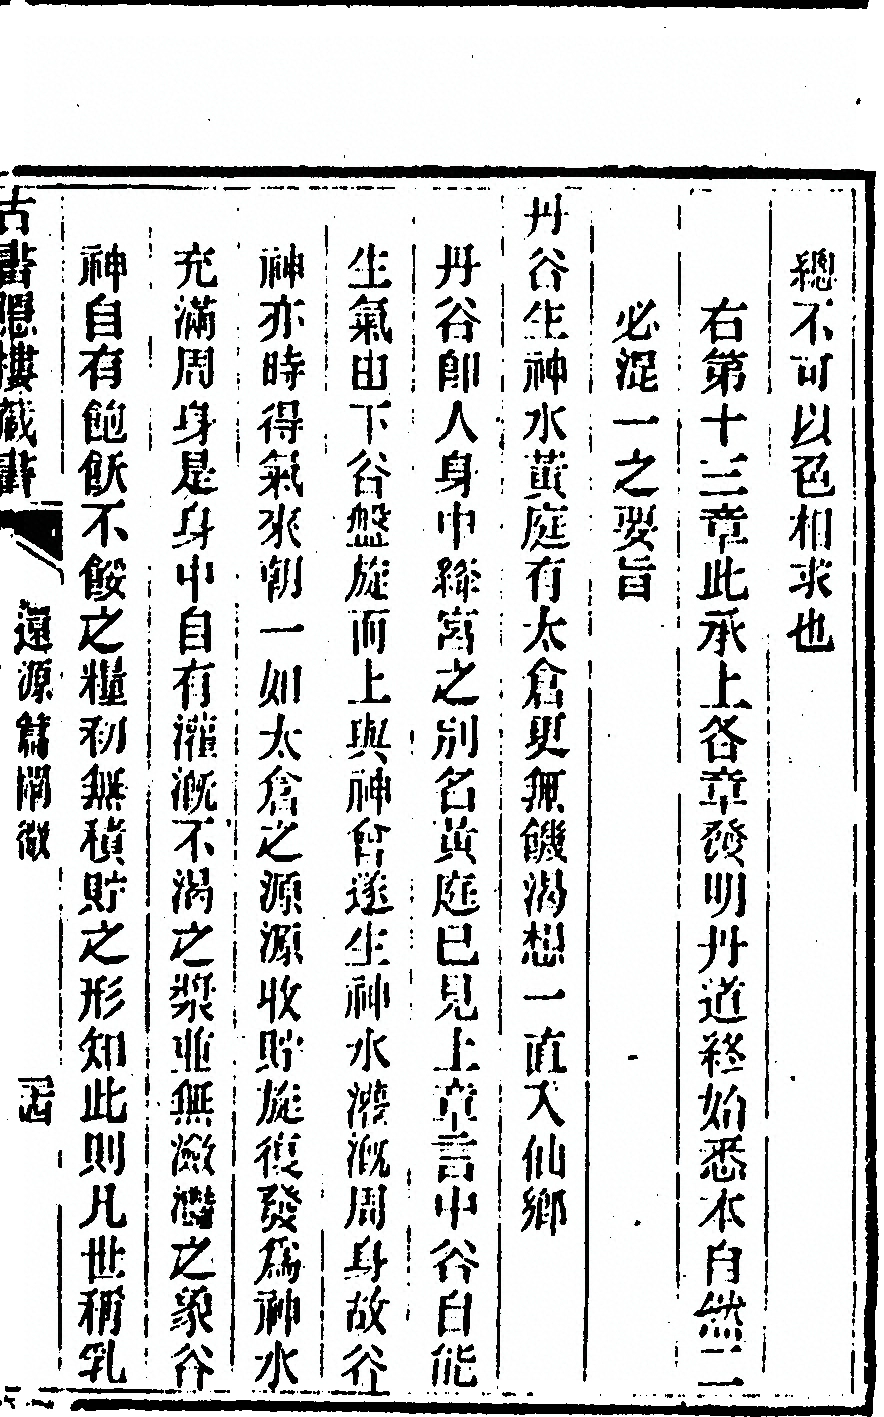 總不可以色相求也
右第十三章此承上各章發明丹道終始悉本自然二
必混一之要旨
丹谷生神水黃庭有太倉更無饑渴想一直入仙鄉
丹谷卽人身中絳宮之別名黃庭已見上章言中谷自能
生氣由下谷盤旋而上與神會遂生神水灌溉周身故谷
神亦時得氣來朝一如太倉之源源收貯旋復發爲神水
充滿周身是身中自有灌溉不渴之漿並無瀲灩之象谷
神自有飽飫不餒之糧初無積貯之形知此則凡世稱乳
古書隱樓藏書
還源篇闡微